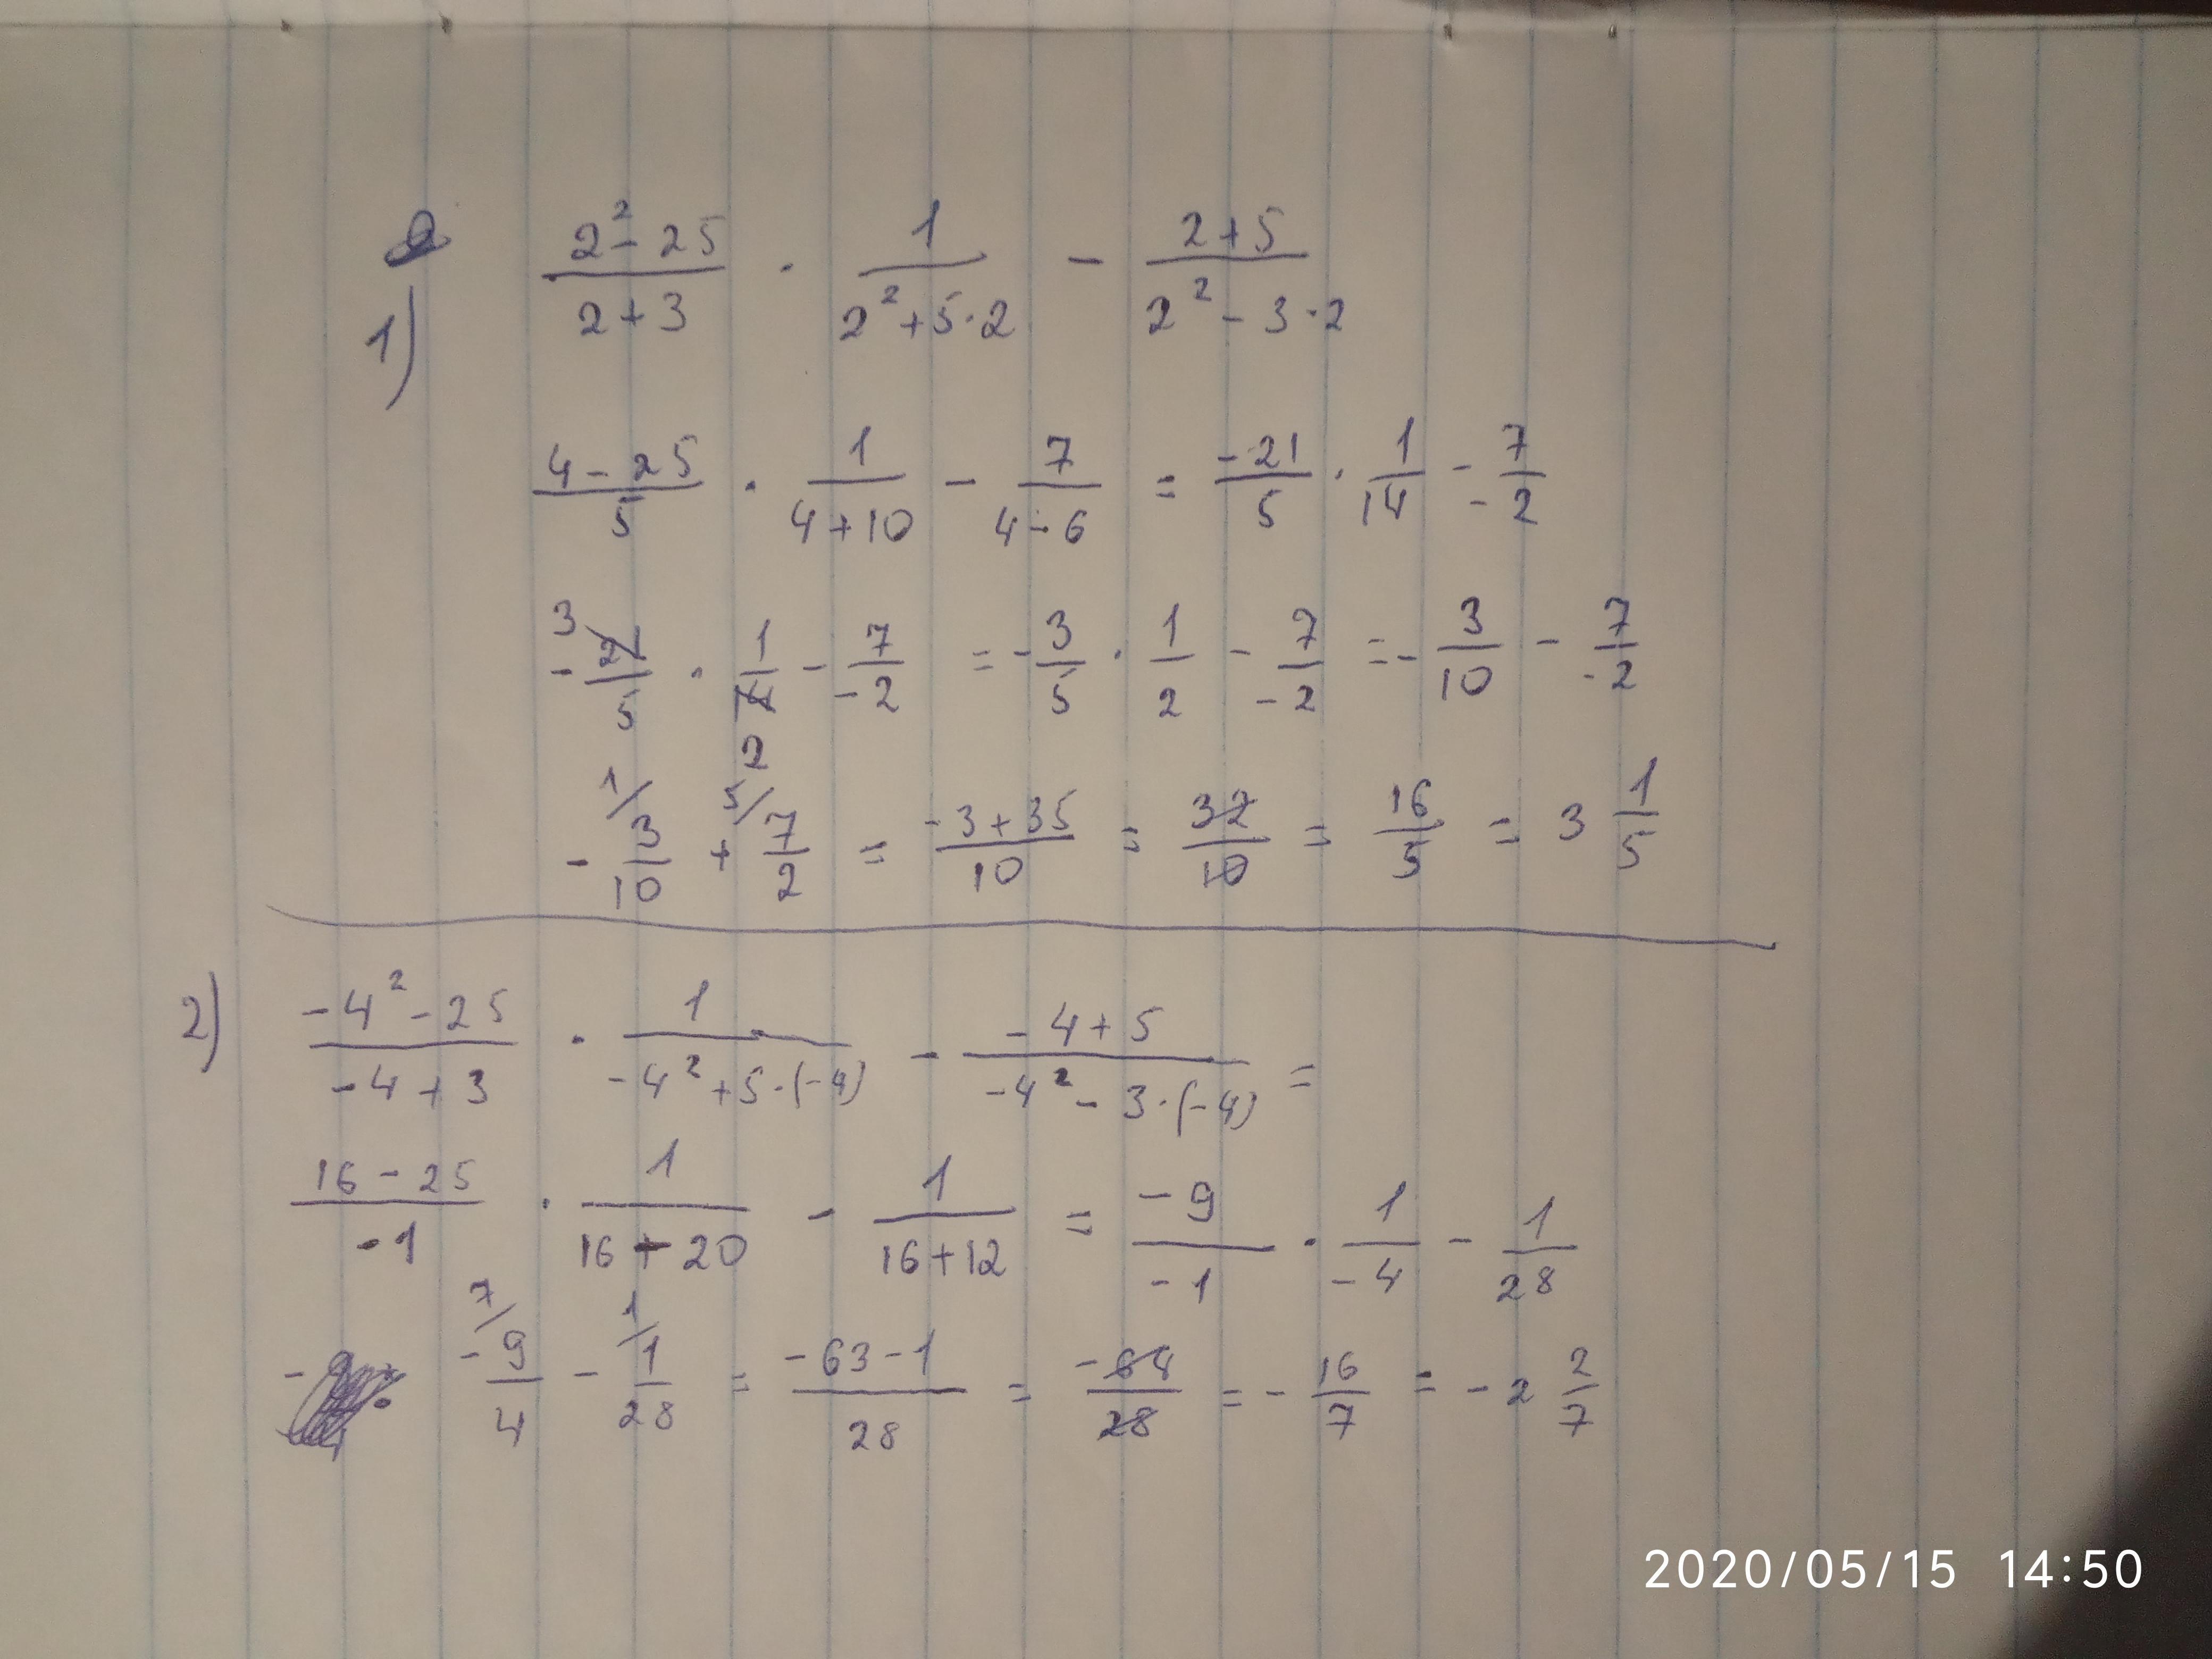 1) (2² - 25)/(2 + 3) · 1/(2² + 5·2) - (2 + 5)/(2² - 3·2)
(4 - 25)/5 · 1/(4 + 10) - 7/(4 - 6) = -21/5 · 1/14 - 7/-2
3
- 21/5 · 1/14 - 7/-2 = - 3/5 · 1/2 - 7/-2 = - 3/10 - 7/-2
2
1/ 5/
- 3/10 + 7/2 = (-3 + 35)/10 = 32/10 = 16/5 = 3 1/5
2) (-4² - 25)/(-4 + 3) · 1/(-4² + 5·(-4)) - (-4 + 5)/(-4² - 3·(-4)) =
(16 - 25)/-1 · 1/(16 - 20) - 1/(16 + 12) = -9/-1 · 1/-4 - 1/28
7/ 1/
-9/4 - 1/28 = (-63 - 1)/28 = -64/28 = - 16/7 = - 2 2/7
2020/05/15 14:50